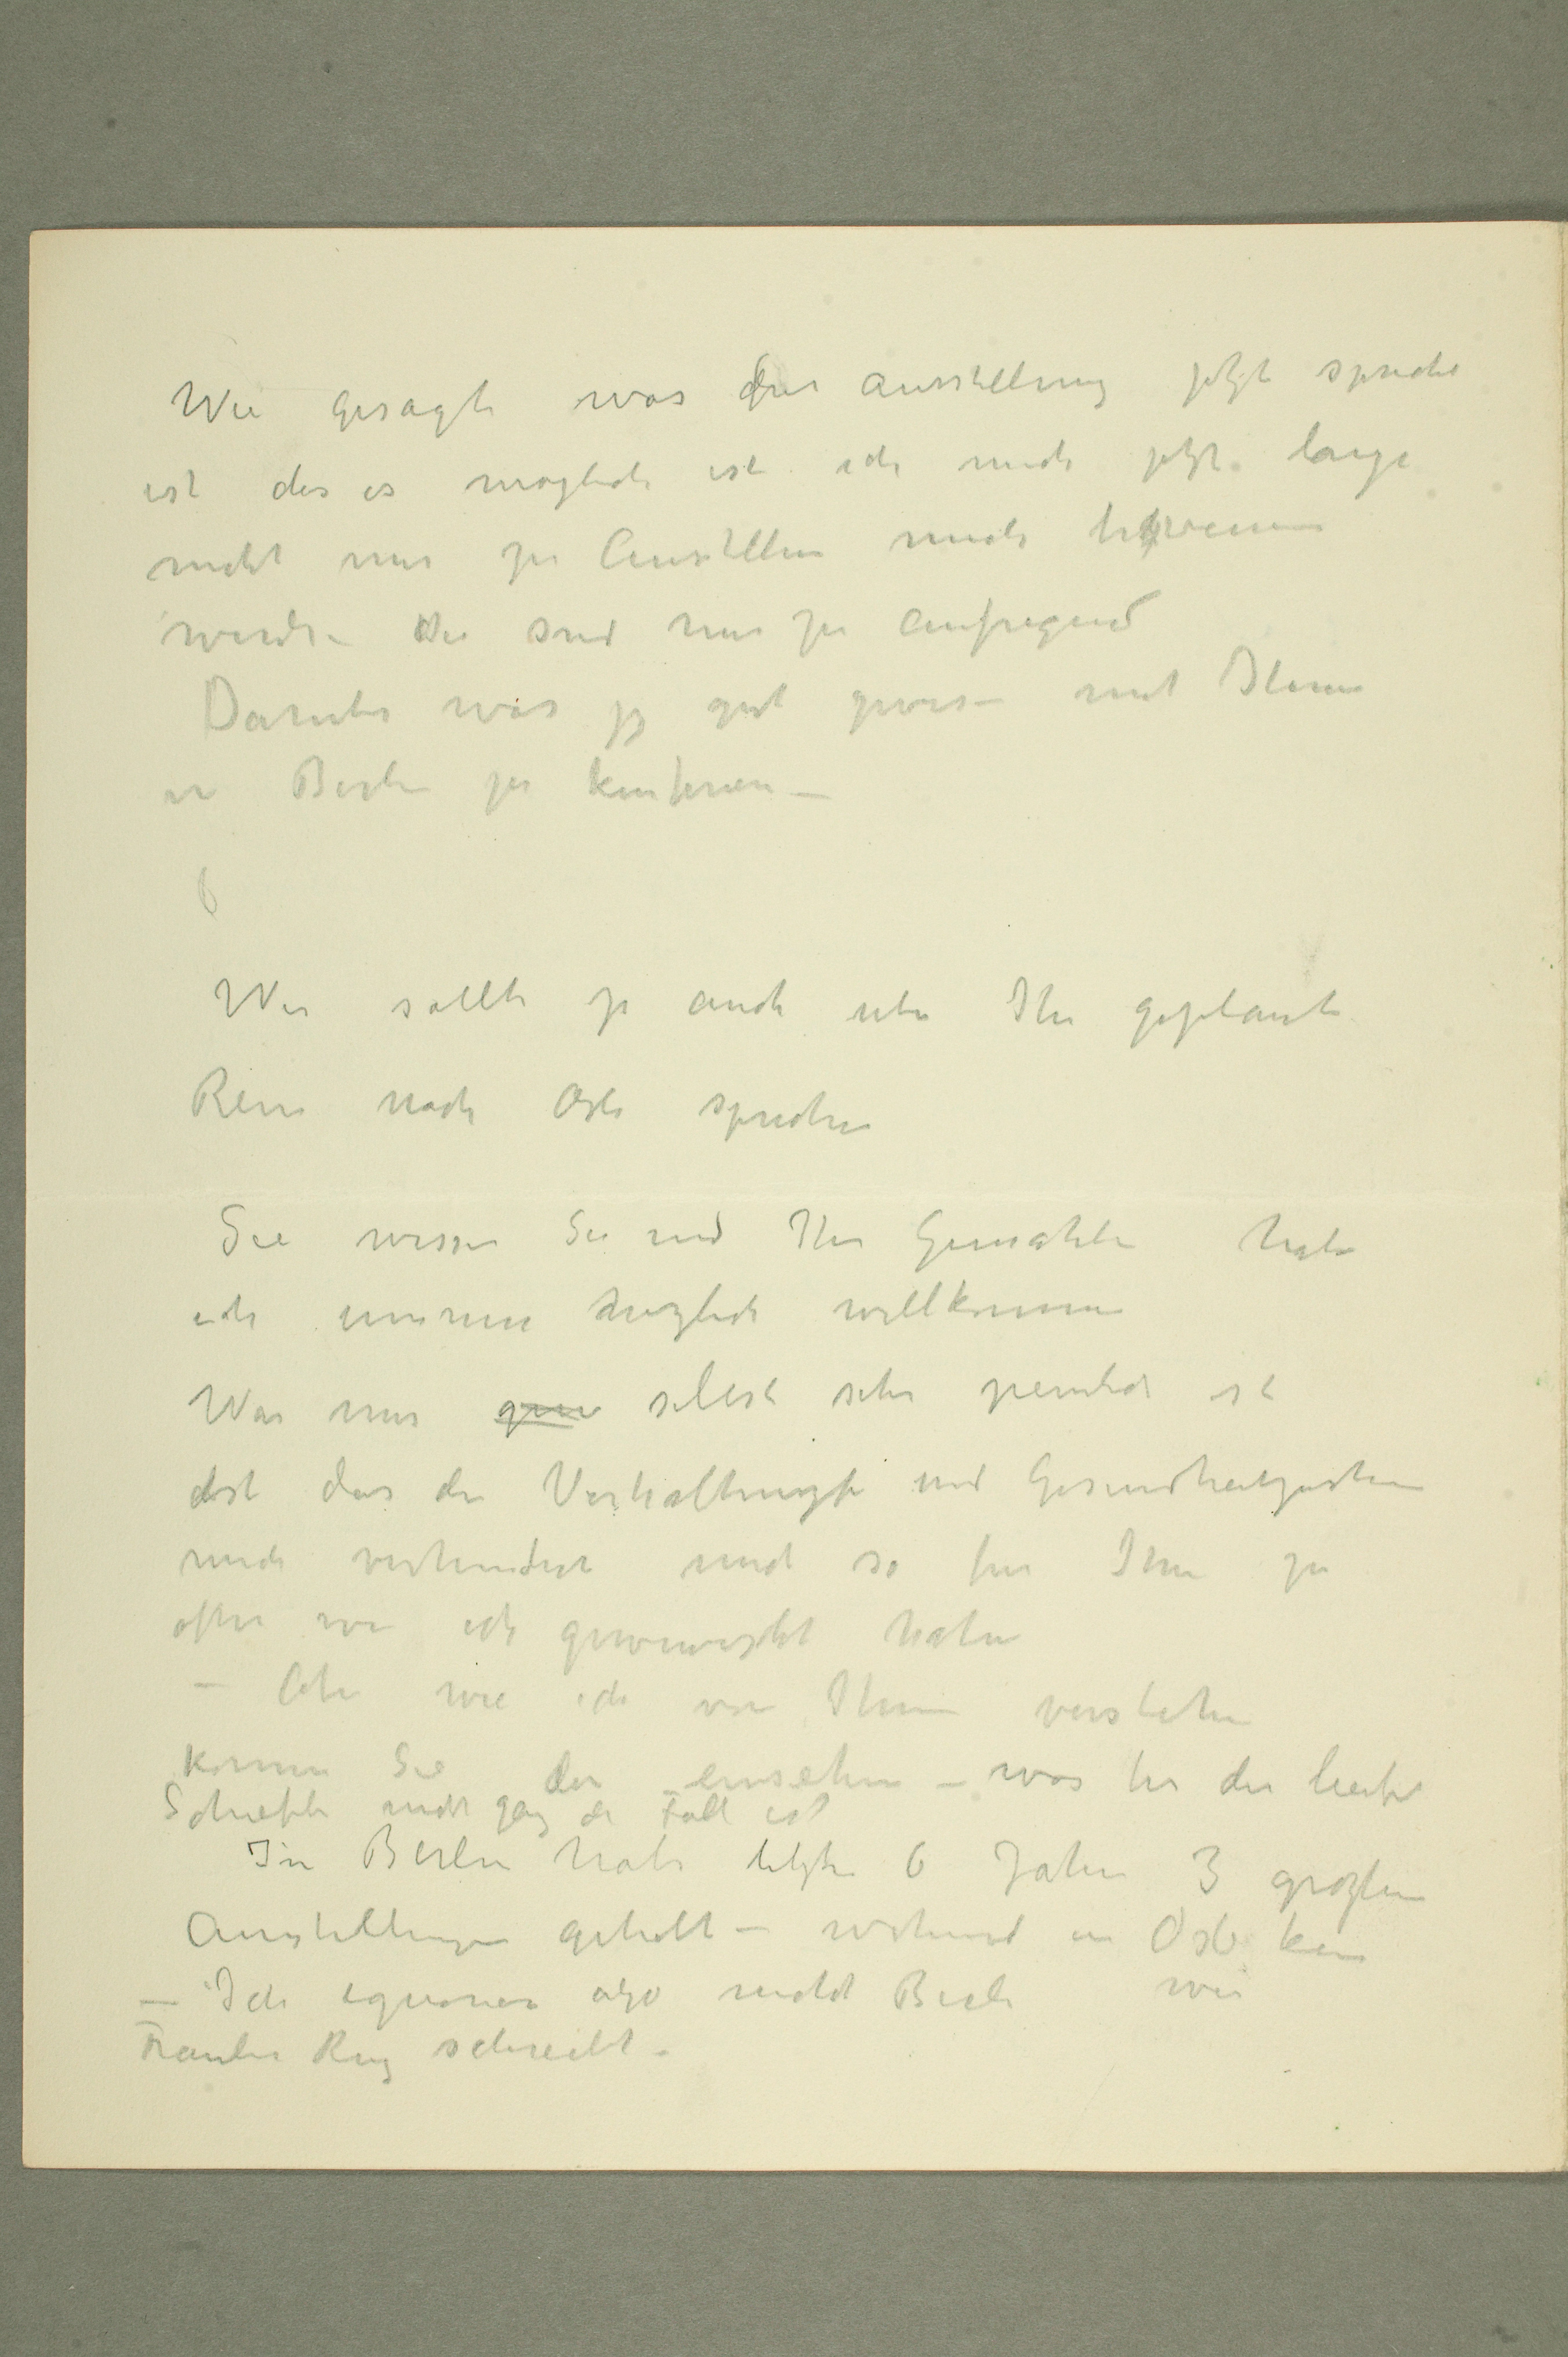 Wie gesagt was für ausstellung jetzt spricht
ist das es möglich ist ich mich jetzt lange
nicht nur zu Ausstellen mich
werden Die sind nur zu aufregend
Darüber wär ja gut gewesen mit Ihnen
in Berlin zu
Wir sollte ja auch über Ihr geplante
Reise nach Oslo sprechen
Sie wissen Sie und Ihr Gemahlin habe
ich immer herzlich willkommen
Was mir selbst sehr peinlich ist
das die und Gesundheitzusta
mich verhindert und so fur Ihm zu
öfter wie ich gewünscht habe
– Aber wie ich von Ihnen verstehe
können Sie das einsehen – was bei der liebe
Schiefler nicht ganz der Fall ist
In Berlin habe letzte 6 Jahre 3 grosten
Ausstellungen gehabt – während in Oslo kein
– Ich ignorier also nicht Berlin wie
Fraulein Ring schreibt –